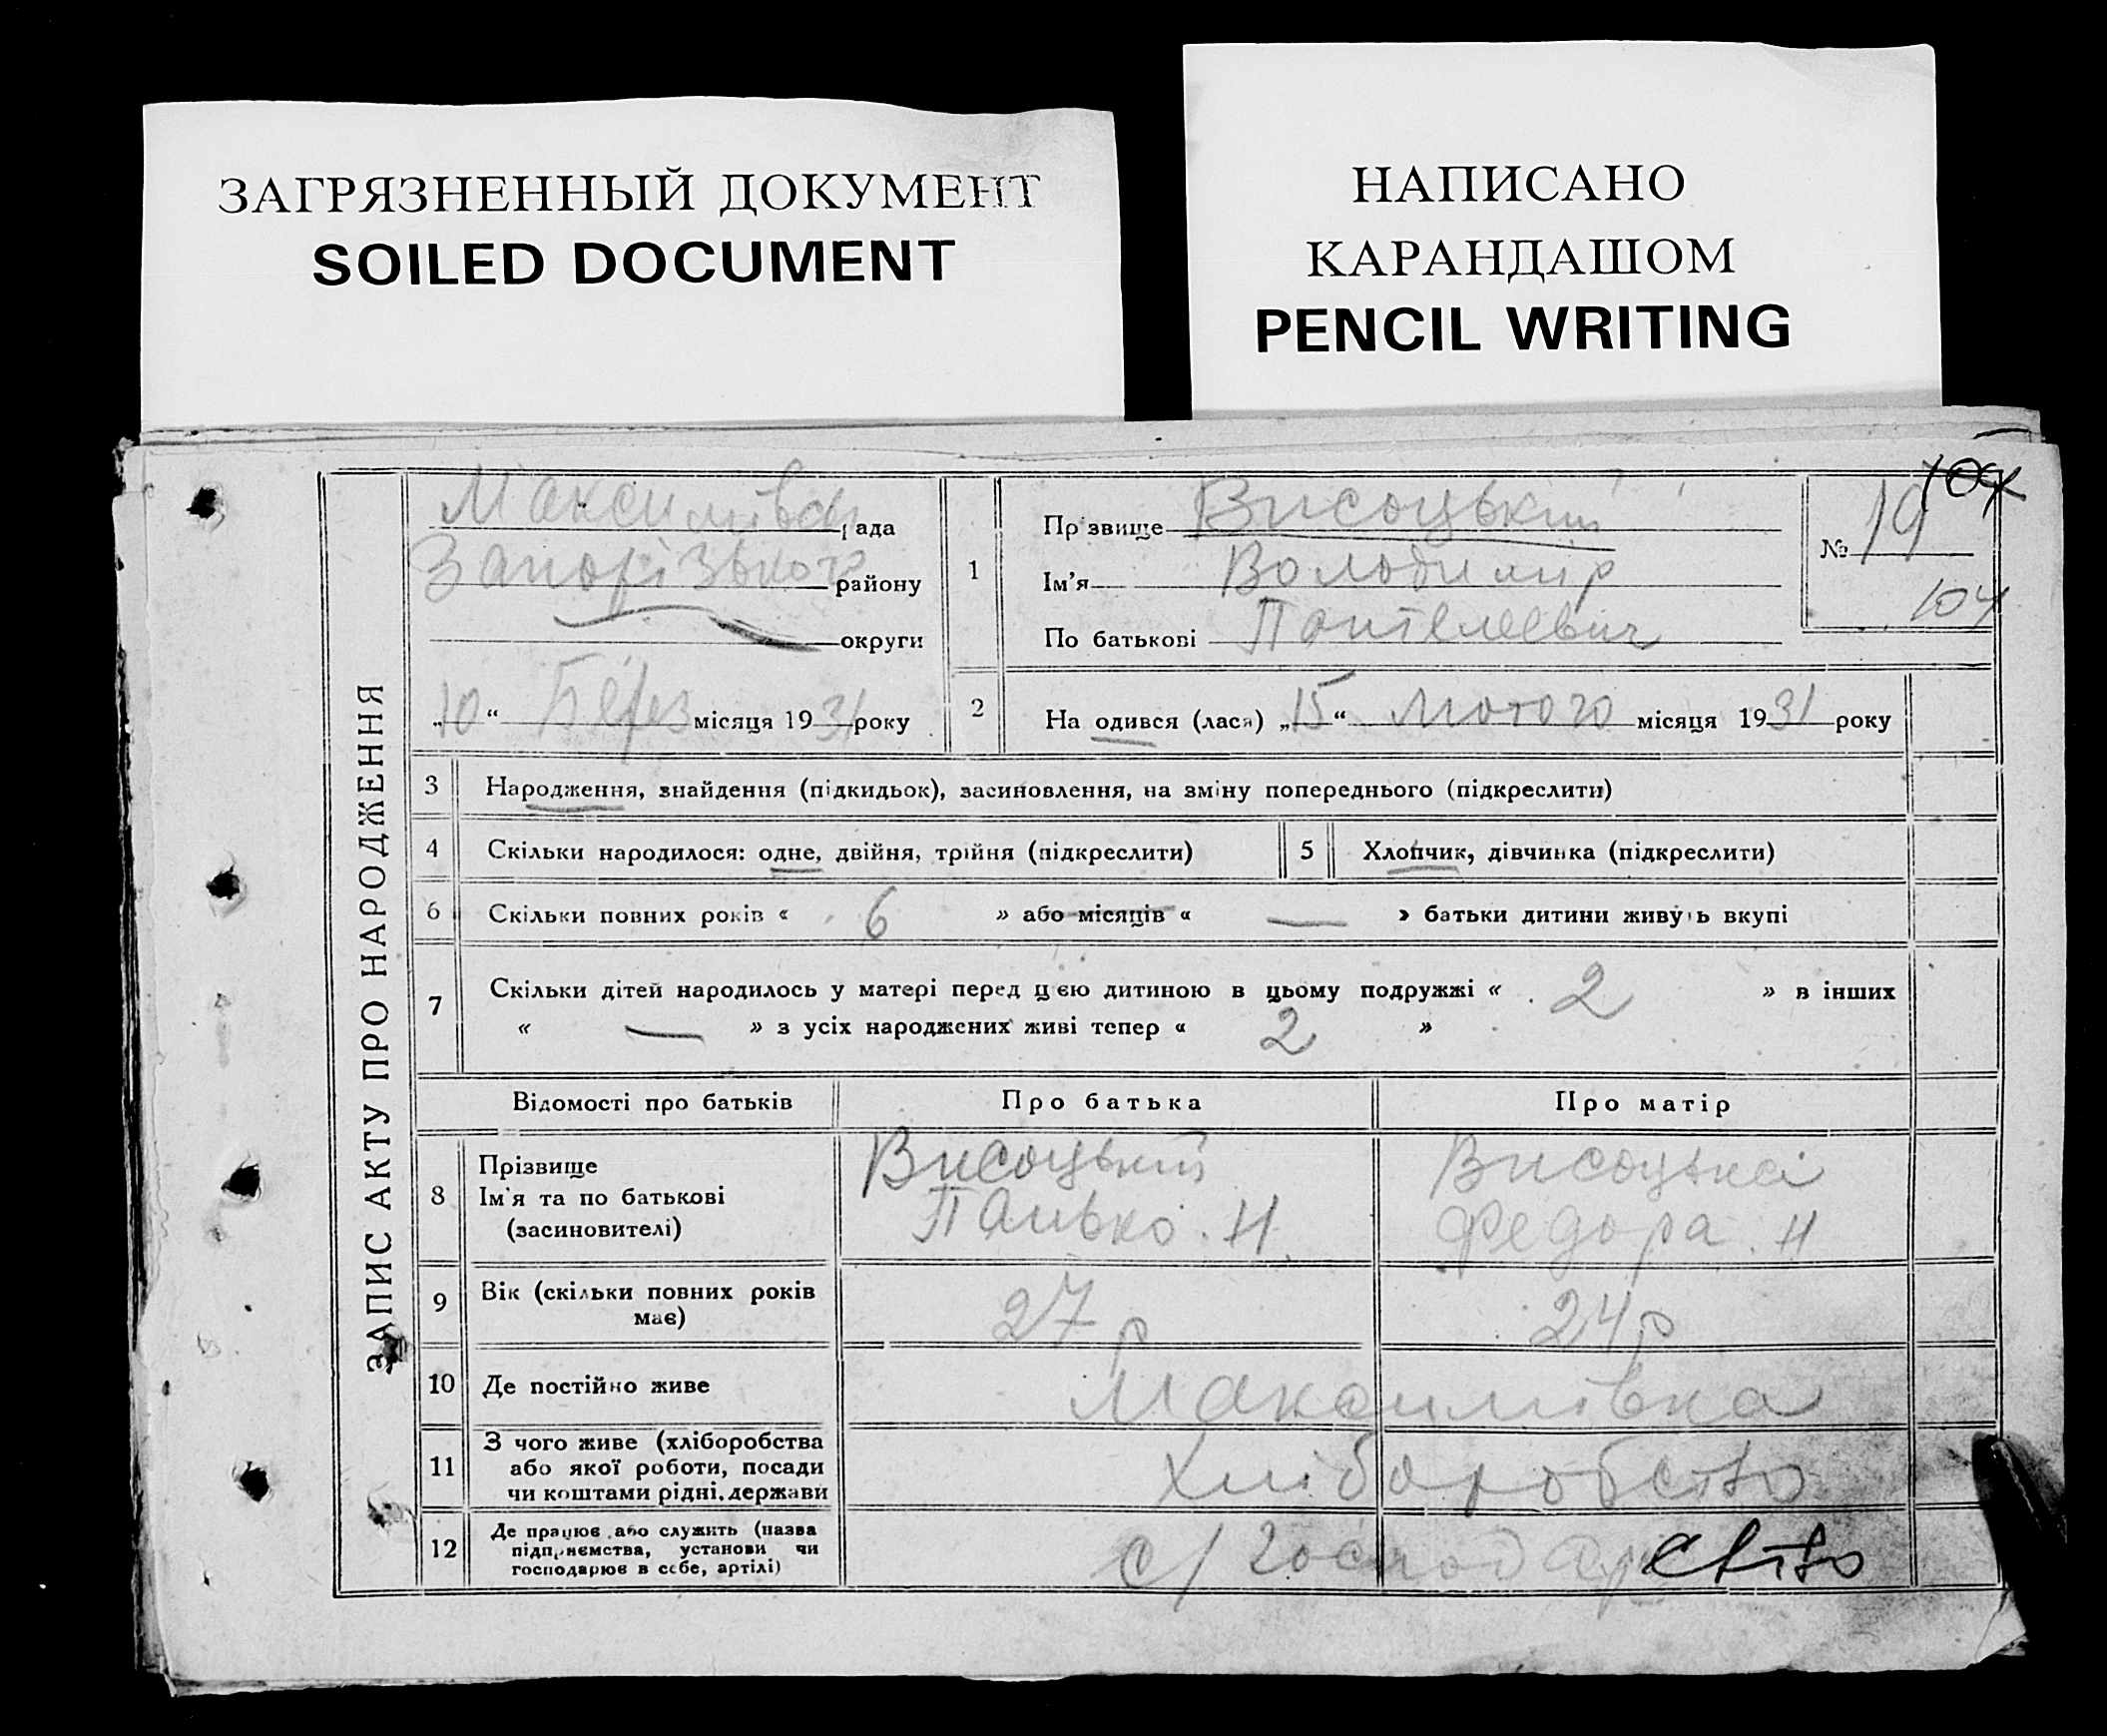 ЗАГРЯЗНЕННЫЙ ДОКУМЕНТ
SOILED DOCUMENT
НАПИСАНО
КАРАНДАШОМ
PENCIL WRITING
ЗАПИС АКТУ ПРО НАРОДЖЕННЯ
рада
Запорізького району
округи
„10“ Берез місяця 1931 року
1
Прізвище Височький
Ім'я Володимир
По батькові Пантелеевич
№ 19
104
104
2 На одився (лася) „15“ Лютого місяця 1931 року
3 Народження, знайдення (підкидьок), засиновлення, на зміну попереднього (підкреслити)
4 Скільки народилося: одне, двійня, трійня (підкреслити)
5 Хлопчик, дівчинка (підкреслити)
6 Скільки повних років « 6 » або місяців « — » батьки дитини живуть вкупі
7 Скільки дітей народилось у матері перед цією дитиною в цьому подружжі « 2 » в інших
« — » з усіх народжених живі тепер « 2 »
Відомості про батьків Про батька Про матір
8 Прізвище
Ім'я та по батькові
(засиновителі)
Височький
Панько. Н.
Височька
Федора. Н
9 Вік (скільки повних років
має)
27 р
24 р
10 Де постійно живе Максимівка
11 З чого живе (хліборобства
або якої роботи, посади
чи коштами рідні, держави
Хліборобство
12 Де працює або служить (назва
підприємства, установи чи
господарює в себе, артілі)
с/господарство